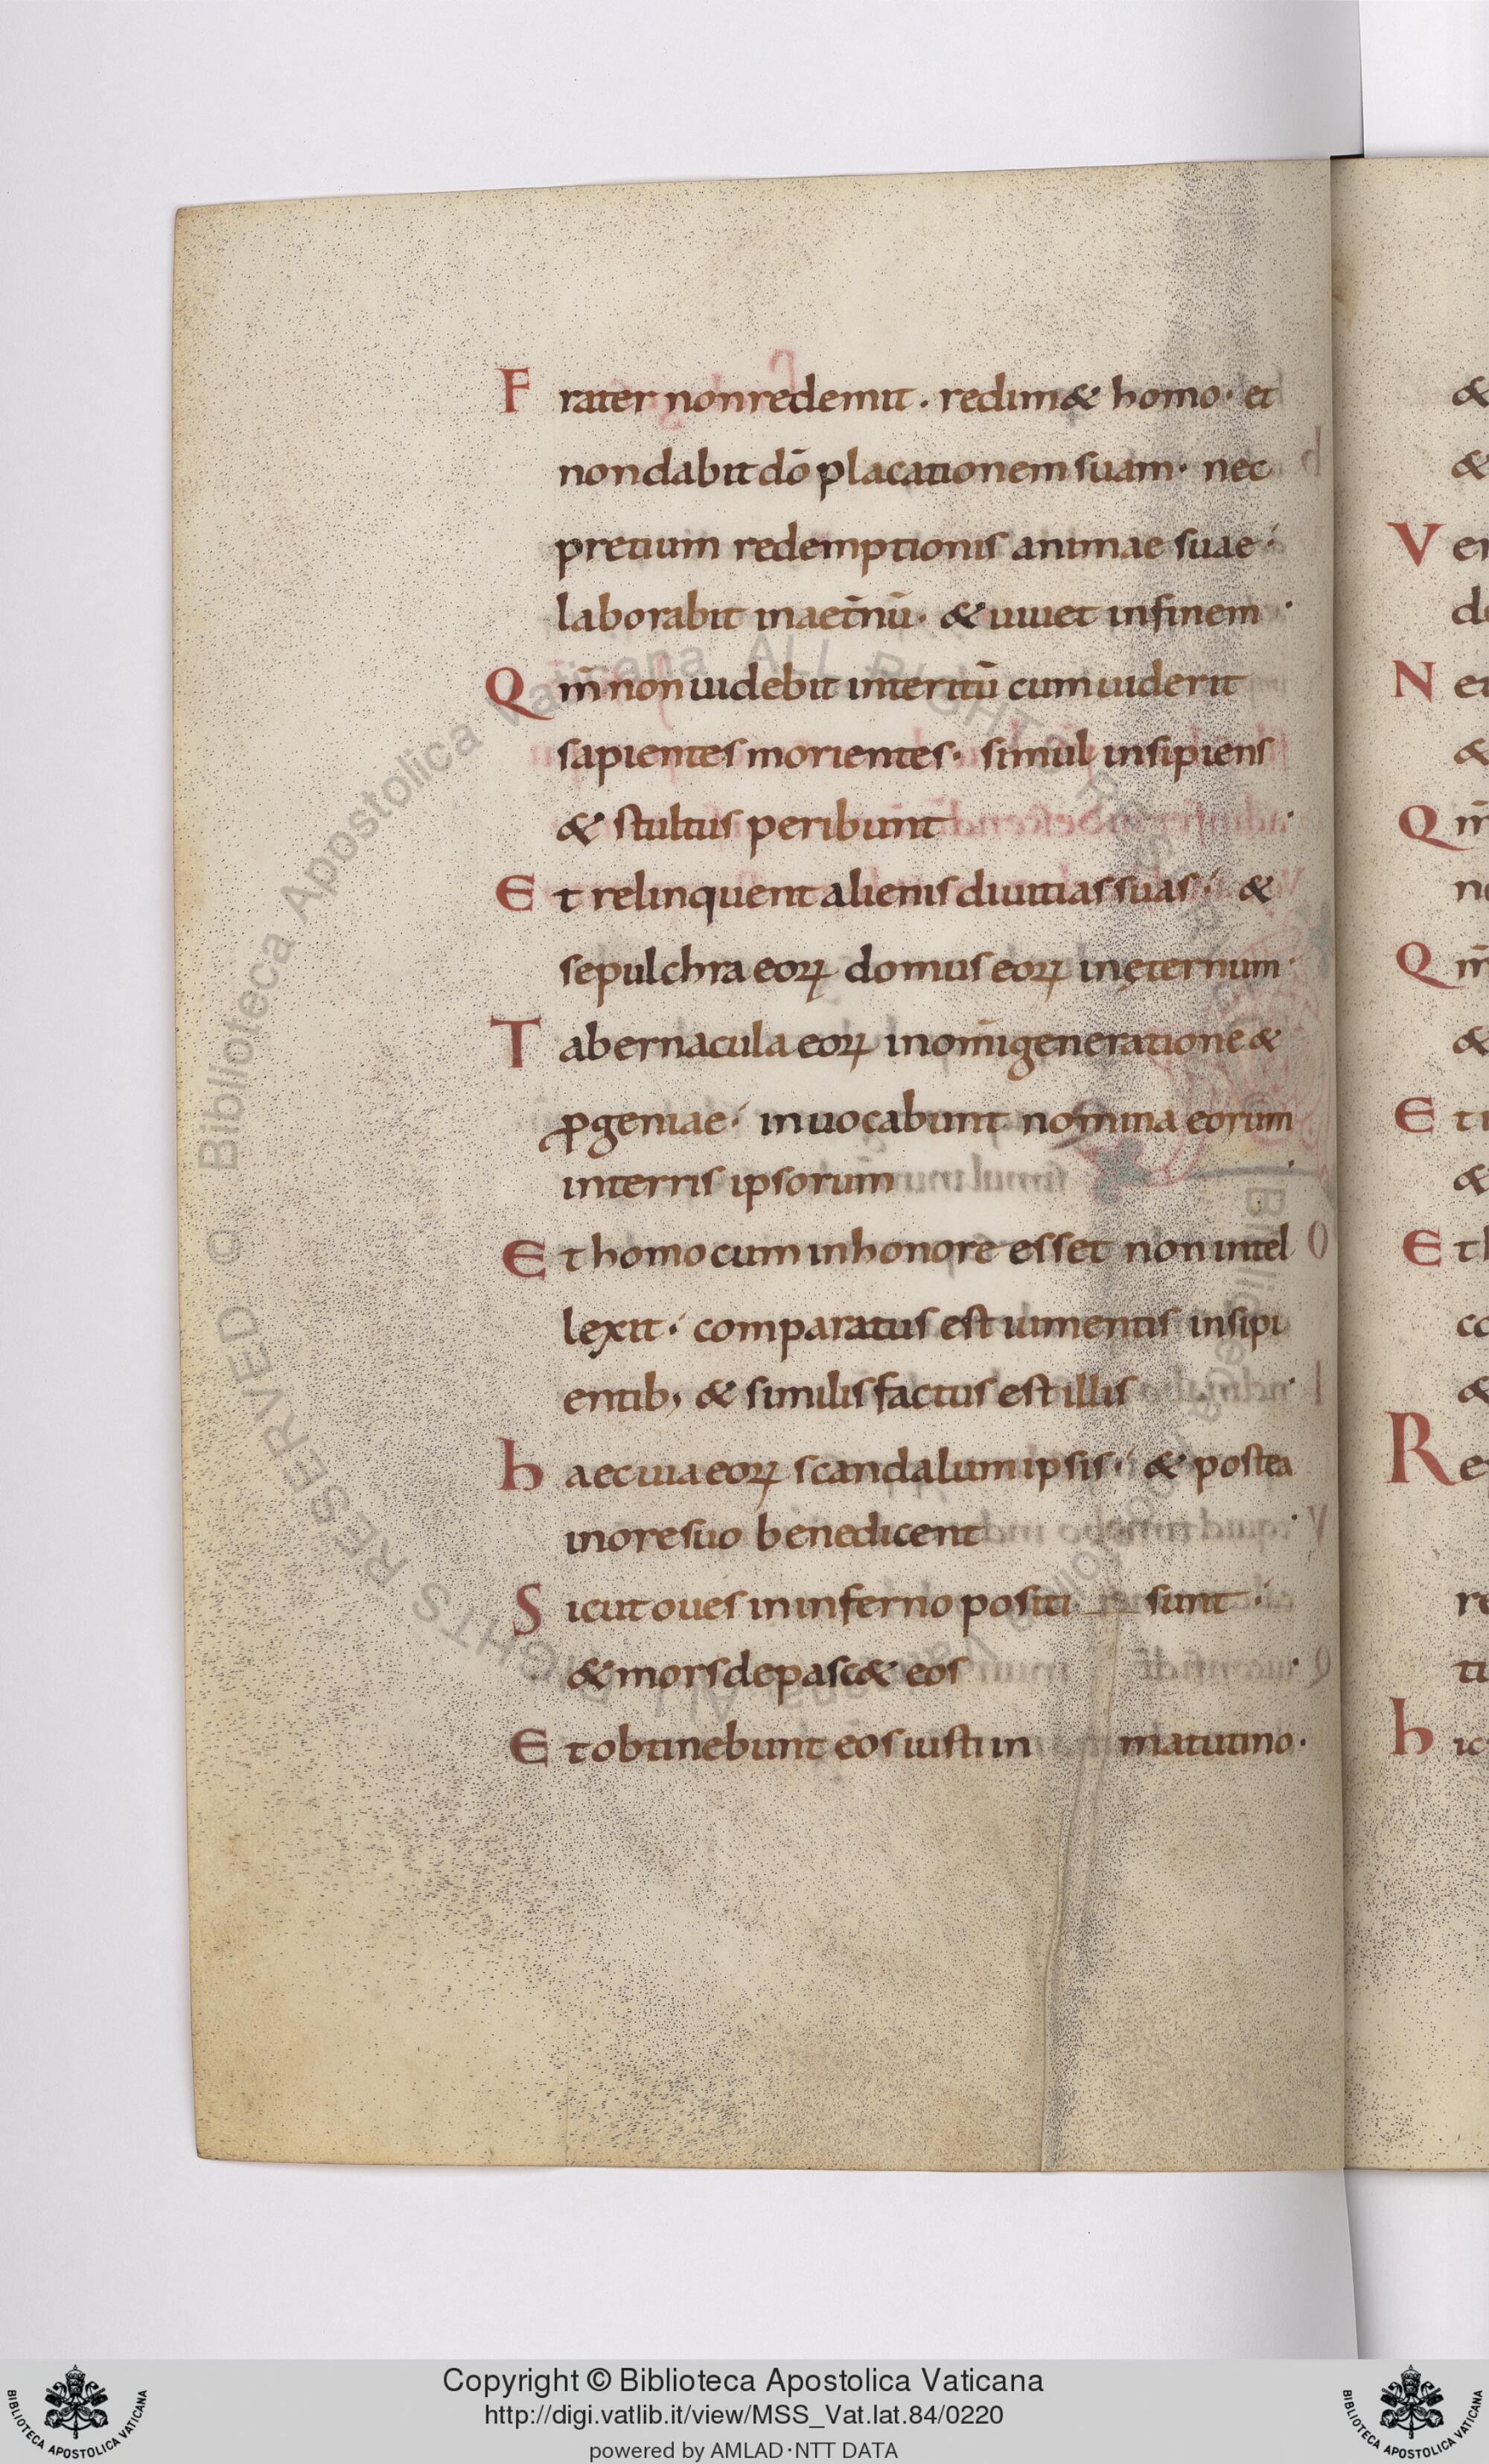 Frater non redemit · redim& homo · et
non dabit dō placationem suam · nec
pretium redemptionis animae suae ·
laborabit in aet̄nū · & uiuet in finem ·
Qm̄ non uidebit interitū cum uiderit
sapientes morientes · simul insipiens
& stultus peribunt ·
Et relinquent alienis diuitias suas · &
sepulchra eoꝝ domus eoꝝ in ęternum ·
Tabernacula eoꝝ in om̄i generatione &
ꝓgeniae · inuocabunt nomina eorum
in terris ipsorum ·
Et homo cum in honore esset non intel
lexit · comparatus est iumentis insipi
entib; & similis factus est illis ·
haec uia eoꝝ scandalum ipsis · & postea
in ore suo benedicent ·
Sicut oues in inferno positi sunt ·
& mors depasc& eos ·
Et obtinebunt eos iusti in matutino ·
&
&
V er
de
N e
&
Q m̄
n
Q m̄
&
E t
&
E t h
co
&
R e
re
ti
h ic
Biblioteca Apostolica Vaticana ALL RIGHTS RESERVED ©
Copyright © Biblioteca Apostolica Vaticana
http://digi.vatlib.it/view/MSS_Vat.lat.84/0220
powered by AMLAD·NTT DATA
BIBLIOTECA APOSTOLICA VATICANA
BIBLIOTECA APOSTOLICA VATICANA